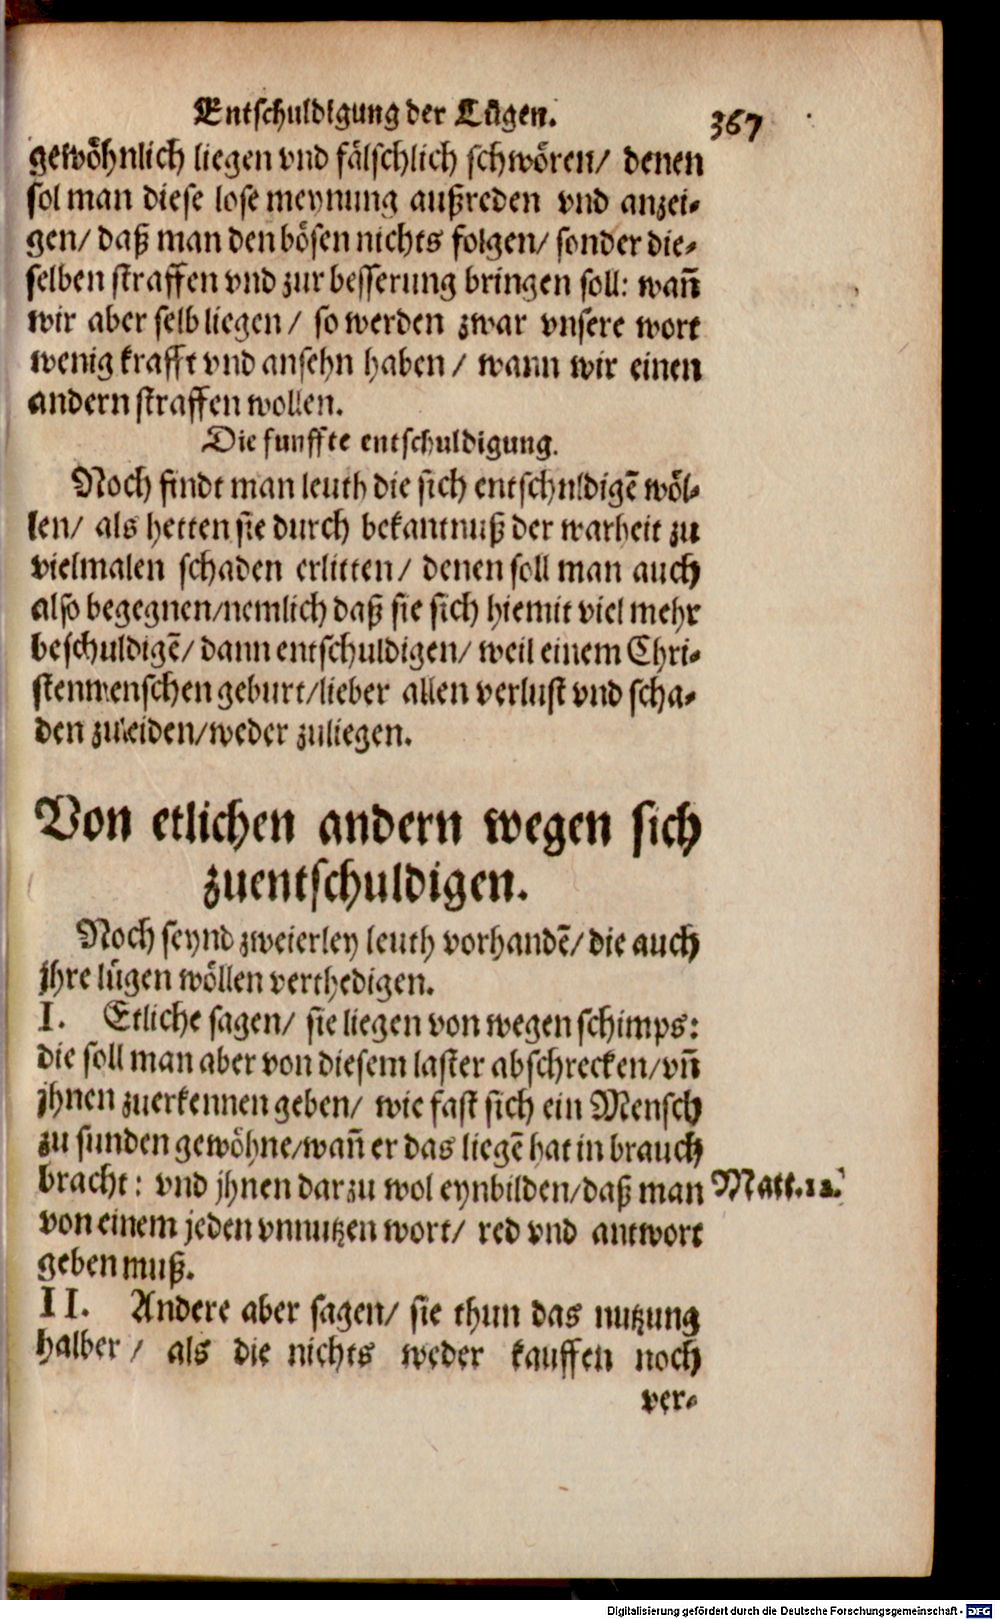 Entschuldigung der Lügen. 367
gewöhnlich liegen vnd fälschlich schwören/ denen
sol man diese lose meynung außreden vnd anzei-
gen/ daß man den bösen nichts folgen/ sonder die-
selben straffen vnd zur besserung bringen soll: wañ
wir aber selb liegen/ so werden zwar vnsere wort
wenig krafft vnd ansehn haben/ wann wir einen
andern straffen wollen.
Die funffte entschuldigung.
Noch findt man leuth die sich entschuldigẽ wöl-
len/ als hetten sie durch bekantnuß der warheit zu
vielmalen schaden erlitten/ denen soll man auch
also begegnen/nemlich daß sie sich hiemit viel mehr
beschuldigẽ/ dann entschuldigen/ weil einem Chri-
stenmenschen geburt/lieber allen verlust vnd scha-
den zuleiden/weder zuliegen.
Von etlichen andern wegen sich
zuentschuldigen.
Noch seynd zweierley leuth vorhandẽ/ die auch
jhre lügen wöllen verthedigen.
I. Etliche sagen/ sie liegen von wegen schimps:
die soll man aber von diesem laster abschrecken/vñ
jhnen zuerkennen geben/ wie fast sich ein Mensch
zu sunden gewöhne/wañ er das liegẽ hat in brauch
bracht: vnd jhnen darzu wol eynbilden/daß man Matt.12.
von einem jeden vnnutzen wort/ red vnd antwort
geben muß.
II. Andere aber sagen/ sie thun das nutzung
halber/ als die nichts weder kauffen noch
ver-
Digitalisierung gefördert durch die Deutsche Forschungsgemeinschaft - DFG